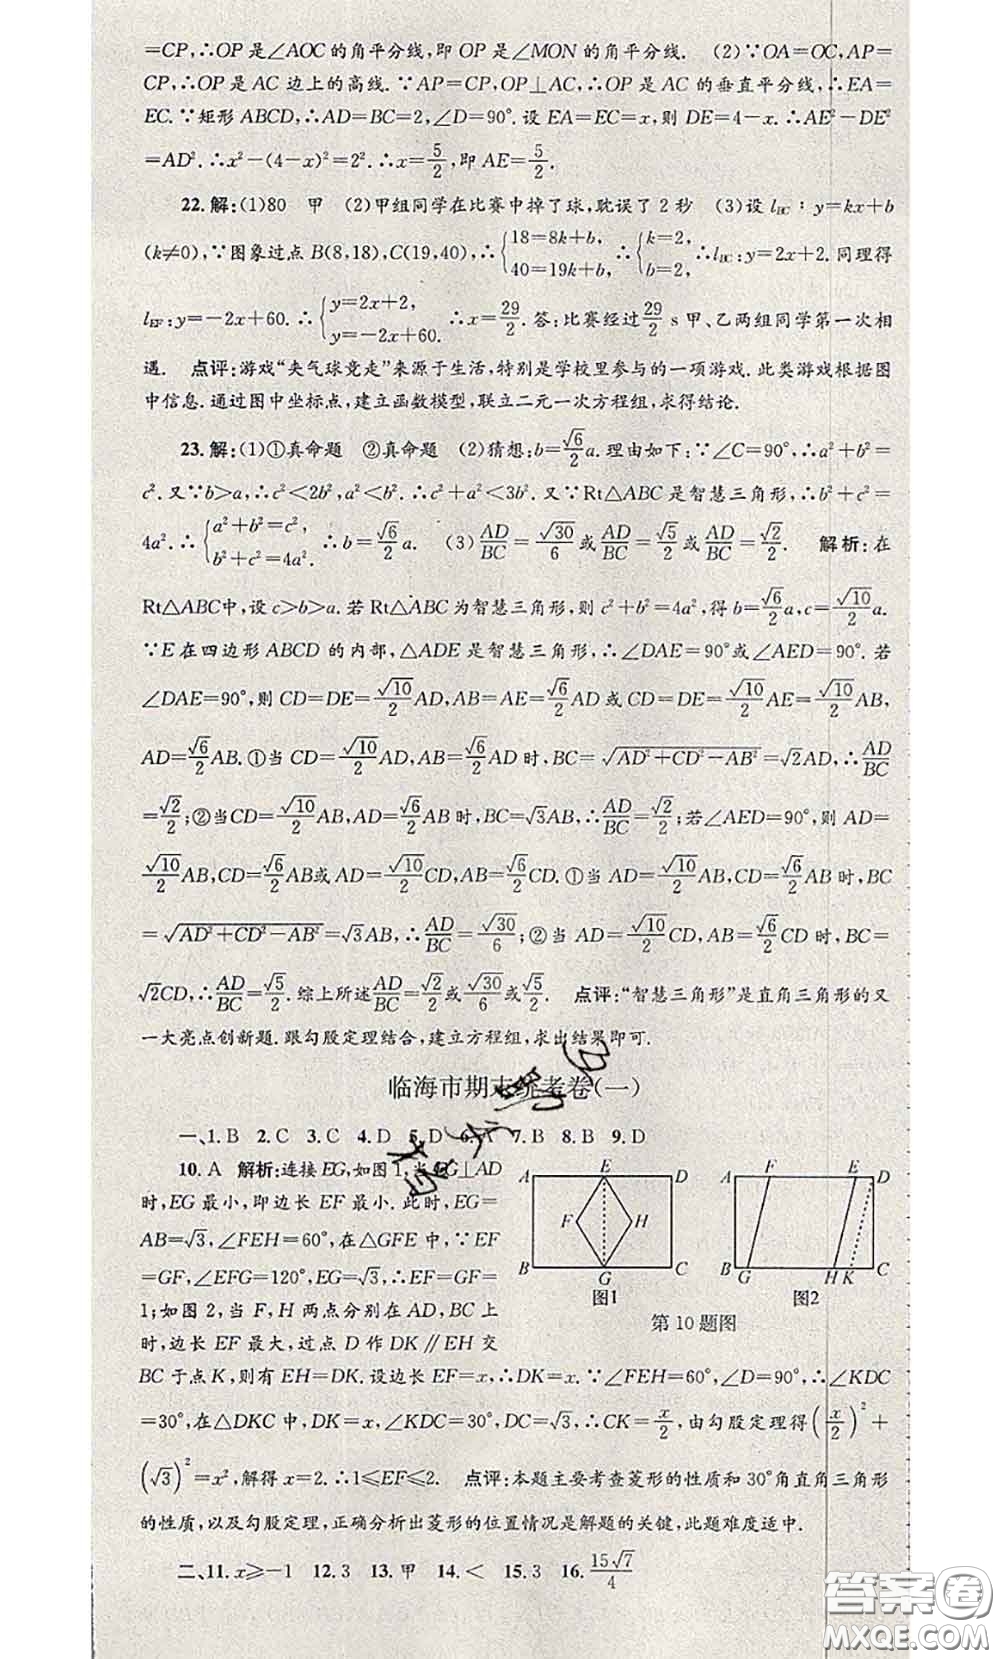 =CP,∴OP是∠AOC的角平分线,即OP是∠MON的角平分线. (2)∵OA=OC,AP=
CP,∴OP是AC边上的高线.∵AP=CP,OP⊥AC,∴OP是AC的垂直平分线,∴EA=
EC.∵矩形ABCD,∴AD=BC=2,∠D=90°.设EA=EC=x,则DE=4-x.∴AE²-DE²
=AD².∴x²-(4-x)²=2².∴x=5/2,即AE=5/2.
22.解:(1)80 甲 (2)甲组同学在比赛中掉了球,耽误了2秒 (3)设l_BC:y=kx+b
(k≠0),∵图象过点B(8,18),C(19,40),∴{18=8k+b, 40=19k+b, ∴{k=2, b=2. ∴l_BC:y=2x+2.同理得
l_EF:y=-2x+60.∴{y=2x+2, y=-2x+60. ∴x=29/2.答:比赛经过29/2 s甲、乙两组同学第一次相
遇. 点评:游戏“夹气球竞走”来源于生活,特别是学校里参与的一项游戏.此类游戏根据图
中信息.通过图中坐标点,建立函数模型,联立二元一次方程组,求得结论.
23.解:(1)①真命题 ②真命题 (2)猜想:b=√6/2a.理由如下:∵∠C=90°,∴a²+b²=
c².又∵b>a,∴c²<2b²,a²<b².∴c²+a²<3b².又∵Rt△ABC是智慧三角形,∴b²+c²=
4a².∴{a²+b²=c², b²+c²=4a². ∴b=√6/2a. (3)AD/BC=√30/6或AD/BC=√5/2或AD/BC=√2/2. 解析:在
Rt△ABC中,设c>b>a.若Rt△ABC为智慧三角形,则c²+b²=4a²,得b=√6/2a,c=√10/2a.
∵E在四边形ABCD的内部,△ADE是智慧三角形,∴∠DAE=90°或∠AED=90°.若
∠DAE=90°,则CD=DE=√10/2AD,AB=AE=√6/2AD或CD=DE=√10/2AE=√10/2AB,
AD=√6/2AB.①当CD=√10/2AD,AB=√6/2AD时,BC=√(AD²+CD²-AB²)=√2AD,∴AD/BC
=√2/2;②当CD=√10/2AB,AD=√6/2AB时,BC=√3AB,∴AD/BC=√2/2;若∠AED=90°,则AD=
√10/2AB,CD=√6/2AB或AD=√10/2CD,AB=√6/2CD.①当AD=√10/2AB,CD=√6/2AB时,BC
=√(AD²+CD²-AB²)=√3AB,∴AD/BC=√30/6;②当AD=√10/2CD,AB=√6/2CD时,BC=
√2CD,∴AD/BC=√5/2.综上所述AD/BC=√2/2或√30/6或√5/2. 点评:“智慧三角形”是直角三角形的又
一大亮点创新题.跟勾股定理结合,建立方程组,求出结果即可.
临海市期末统考卷(一)
一、1.B 2.C 3.C 4.D 5.D 6.A 7.B 8.B 9.D
10.A 解析:连接EG,如图1,当EG⊥AD
时,EG最小,即边长EF最小.此时,EG=
AB=√3,∠FEH=60°,在△GFE中,∵EF
=GF,∠EFG=120°,EG=√3,∴EF=GF=
1;如图2,当F,H两点分别在AD,BC上
时,边长EF最大,过点D作DK∥EH交
A E D
F H
B G C
图1
A F E D
B G H K C
图2
第10题图
BC于点K,则有EH=DK.设边长EF=x,∴DK=x.∵∠FEH=60°,∠D=90°,∴∠KDC
=30°,在△DKC中,DK=x,∠KDC=30°,DC=√3,∴CK=x/2,由勾股定理得(x/2)²+
(√3)²=x²,解得x=2.∴1≤EF≤2. 点评:本题主要考查菱形的性质和30°角直角三角形
的性质,以及勾股定理,正确分析出菱形的位置情况是解题的关键,此题难度适中.
二、11.x≥-1 12.3 13.甲 14.< 15.3 16.15√7/4
答案圈
MXQE.COM